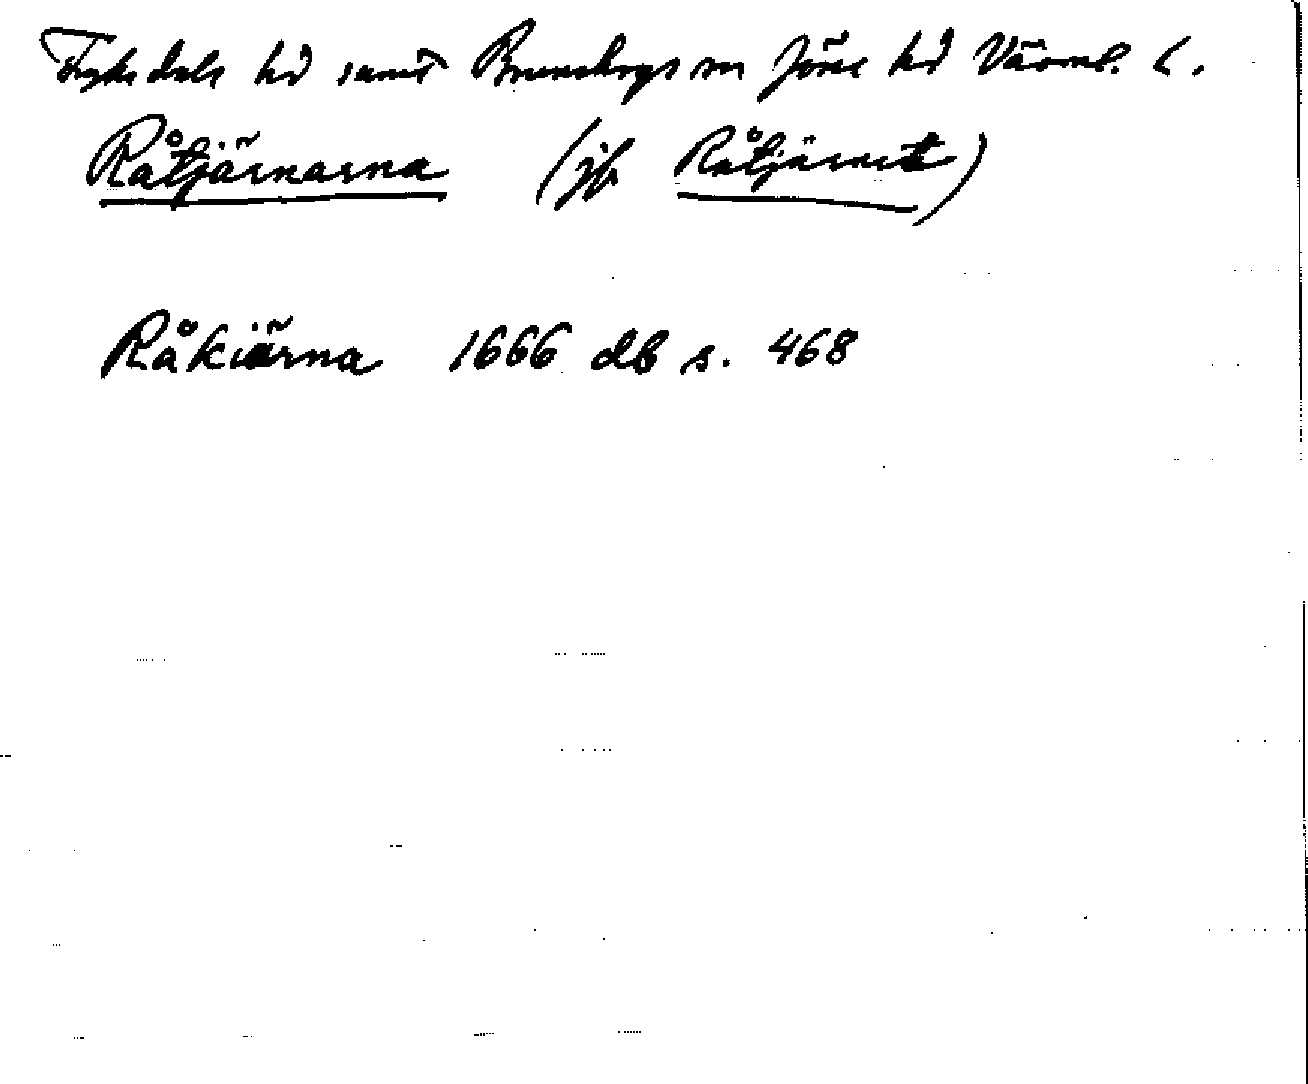 Fryksdals hd samt Brunskogs sn Jösse hd Värml. l.
Råtjärnarna (jfr Råtjärnet)
Råkiärna 1666 db s. 468